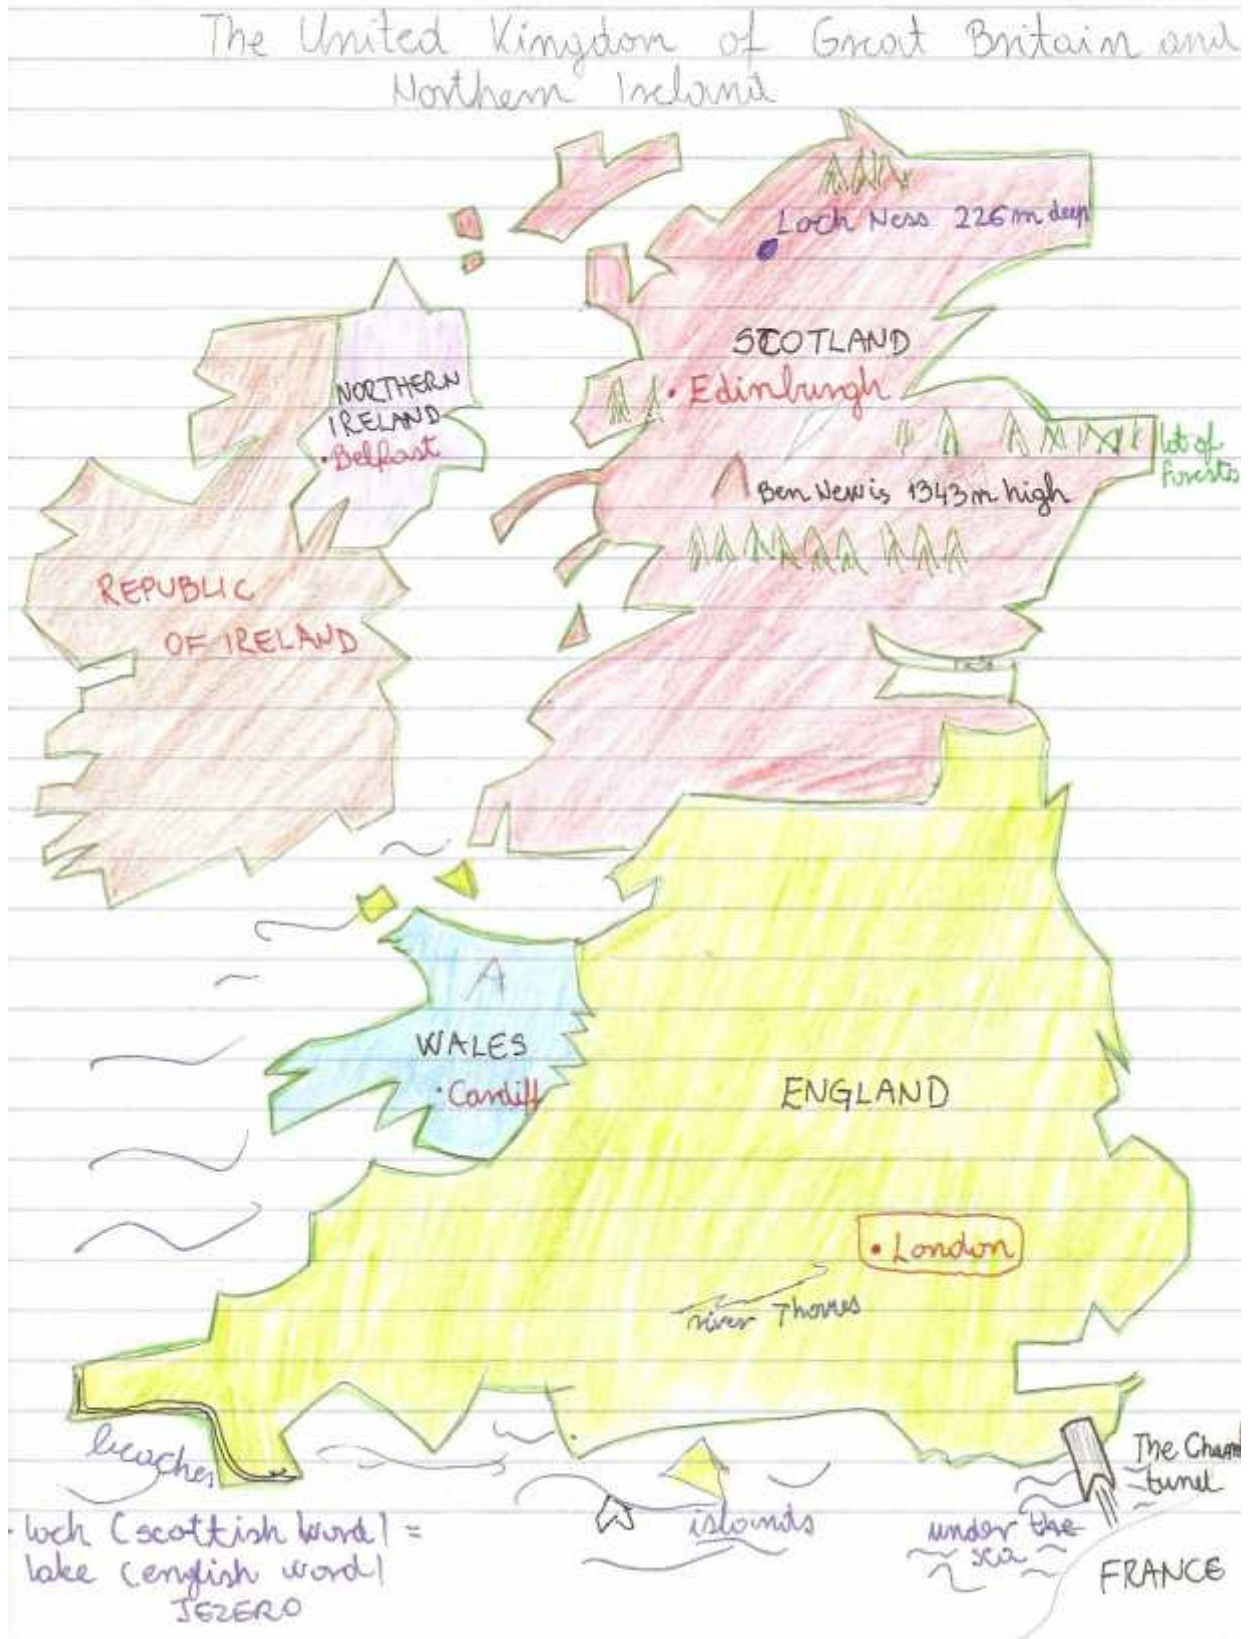 The United Kingdom of Great Britain and
Northern Ireland
Loch Ness 226 m deep
SCOTLAND
• Edinburgh
lot of
forests
Ben Newis 1343 m high
NORTHERN
IRELAND
• Belfast
REPUBLIC
OF IRELAND
WALES
• Cardiff
ENGLAND
• London
river
beaches
The Chann
tunel
islands
under the
sea
FRANCE
loch (scottish word) =
lake (english word)
JEZERO